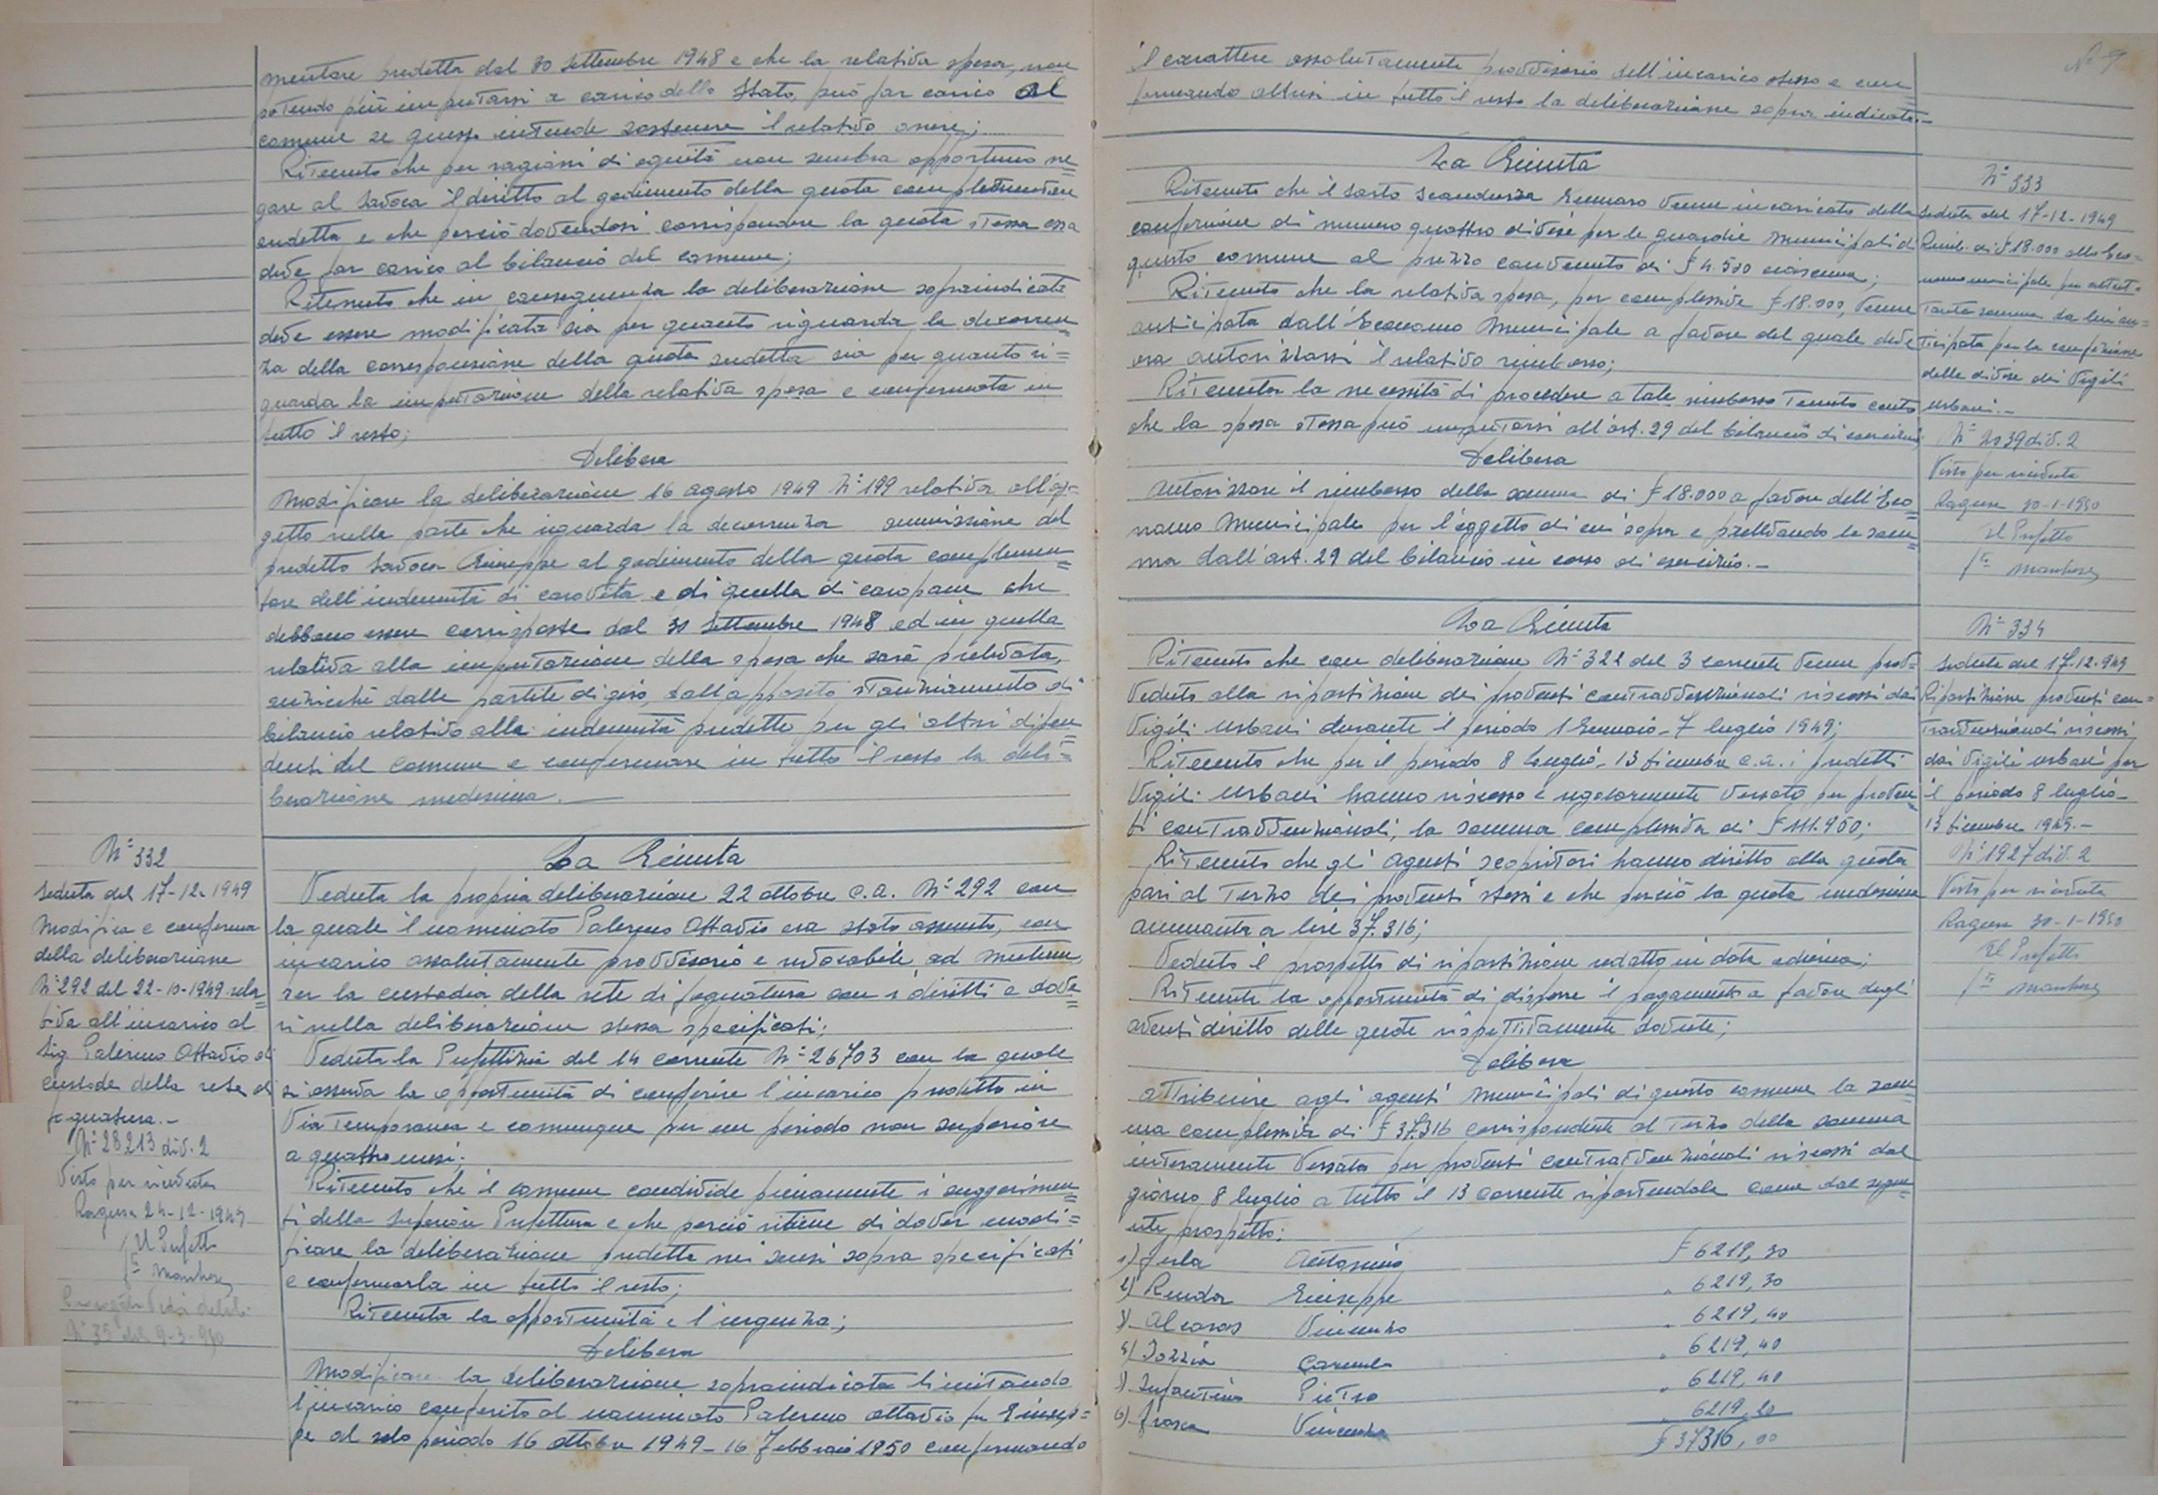 mentare predetta dal 30 settembre 1948 e che la relativa spesa, non
potendo più imputarsi a carico dello Stato, può far carico al
comune se questo intende sostenere il relativo onere;
Ritenuto che per ragioni di equità non sembra opportuno ne=
gare al Savoca il diritto al godimento della quota complementare
sudetta e che perciò dovendosi corrispondere la quota stessa essa
deve far carico al bilancio del comune;
Ritenuto che in conseguenza la deliberazione sopraindicata
deve essere modificata sia per quanto riguarda la decorren=
za della corresponsione della quota sudetta sia per quanto ri=
guarda la imputazione della relativa spesa e confermata in
tutto il resto;
Delibera
Modificare la deliberazione 16 agosto 1949 N° 199 relativa all'og=
getto nella parte che riguarda la decorrenza ammissione del
predetto Savoca Giuseppe al godimento della quota complemen=
tare dell'indennità di carovita e di quella di caropane che
debbono essere corrisposte dal 30 settembre 1948 ed in quella
relativa alla imputazione della spesa che sarà prelevata,
anzicchè dalle partite di giro, dall'apposito stanziamento di
bilancio relativo alla indennità predetta per gli altri dipen
denti del comune e confermare in tutto il resto la deli=
berazione medesima.
N° 332
Seduta del 17-12-1949
Modifica e conferma
della deliberazione
N° 292 del 22-10-1949 rela=
tiva all'incarico al
Sig. Palermo Ottavio di
custode della rete di
fognatura.-
N° 28213 div. 2
Visto per ricevuta
Ragusa 24-12-1949
Il Prefetto
f.to
N° 35 del 9-3-950
La Giunta
Veduta la propria deliberazione 22 ottobre c.a. N° 292 con
la quale il nominato Palermo Ottavio era stato assunto, con
incarico assolutamente provvisorio e revocabile ad nutum,
per la custodia della rete di fognatura con i diritti e dove
ri nella deliberazione stessa specificati;
Veduta la Prefettizia del 14 corrente N° 26703 con la quale
si osserva la opportunità di conferire l'incarico predetto in
via temporanea e comunque per un periodo non superiore
a quattro mesi;
Ritenuto che il comune condivide pienamente i suggerimen=
ti della Superiore Prefettura e che perciò ritiene di dover modi=
ficare la deliberazione predetta nei sensi sopra specificati
e confermarla in tutto il resto;
Ritenuta la opportunità e l'urgenza;
Delibera
Modificare la deliberazione sopraindicata limitando
l'incarico conferito al nominato Palermo Ottavio fu Giusep=
pe al solo periodo 16 ottobre 1949-16 Febbraio 1950 confermando
il carattere assolutamente provvisorio dell'incarico stesso e con
fermando altresì in tutto il resto la deliberazione sopra indicata.-
La Giunta
Ritenuto che il sarto Scandurra Gennaro venne incaricato della
confezione di numero quattro divise per le guardie municipali di
questo comune al prezzo convenuto di £ 4.500 ciascuna;
Ritenuto che la relativa spesa, per complessive £ 18.000, venne
anticipata dall'Economo Municipale a favore del quale deve
ora autorizzarsi il relativo rimborso;
Ritenuta la necessità di procedere a tale rimborso tenuto conto
che la spesa stessa può imputarsi all'art. 29 del bilancio di esercizio;
Delibera
Autorizzare il rimborso della somma di £ 18.000 a favore dell'Eco=
nomo Municipale per l'oggetto di cui sopra e prelevando la som=
ma dall'art. 29 del bilancio in corso di esercizio.-
N° 333
Seduta del 17-12-1949
Rimb. di £ 18.000 allo Eco=
nomo municipale per
tanta somma da lui an=
ticipata per la confezione
delle divise dei Vigili
urbani.-
N° 2039 div. 2
Visto per ricevuta
Ragusa 30-1-1950
Il Prefetto
f.to
La Giunta
Ritenuto che con deliberazione N° 322 del 3 corrente venne prov=
veduto alla ripartizione dei proventi contravvenzionali riscossi dai
Vigili urbani durante il periodo 1 Gennaio-7 luglio 1949;
Ritenuto che per il periodo 8 luglio-13 dicembre c.a. i predetti
Vigili urbani hanno riscosso e regolarmente versato per proven
ti contravvenzionali, la somma complessiva di £ 111.950;
Ritenuto che gli agenti scopritori hanno diritto alla quota
pari al terzo dei proventi stessi e che perciò la quota medesima
ammonta a lire 37.316;
Veduto il prospetto di ripartizione redatto in data odierna;
Ritenuta la opportunità di disporre il pagamento a favore degli
aventi diritto delle quote rispettivamente dovute;
Delibera
attribuire agli agenti municipali di questo comune la som=
ma complessiva di £ 37.316 corrispondente al terzo della somma
interamente versata per proventi contravvenzionali riscossi dal
giorno 8 luglio a tutto il 13 corrente ripartendola come dal segue=
nte prospetto:
1) Antonino £ 6219,30
2) Renda Giuseppe " 6219,30
3) Vincenzo " 6219,40
4) Carmelo " 6219,40
5) Infantino Pietro " 6219,40
6) Frasca Vincenzo " 6219,20
£ 37316,00
N° 334
Seduta del 17-12-949
Ripartizione proventi con=
travvenzionali riscossi
dai Vigili urbani per
il periodo 8 luglio-
13 dicembre 1949.-
N° 1927 div. 2
Visto per ricevuta
Ragusa 30-1-1950
Il Prefetto
f.to